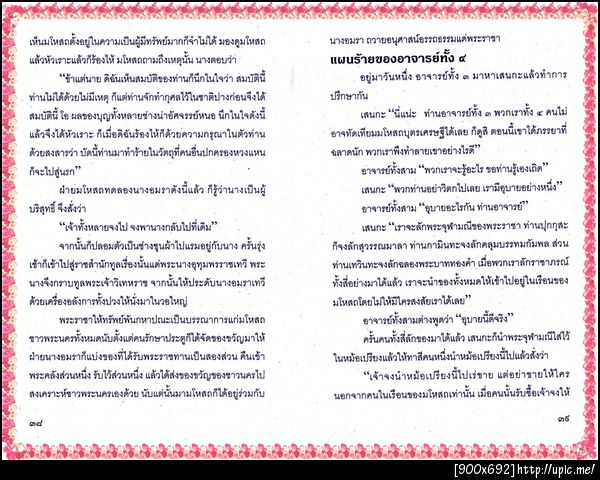 เห็นมโหสถตั้งอยู่ในความเป็นผู้มีทรัพย์มากก็จำไม่ได้ มองดูมโหสถ
แล้วหัวเราะแล้วก็ร้องไห้ มโหสถถามถึงเหตุนั้น นางตอบว่า
“ข้าแต่นาย ดิฉันเห็นสมบัติของท่านก็นึกในใจว่า สมบัตินี้
ท่านไม่ได้ด้วยไม่มีเหตุ ก็แต่ท่านจักทำกุศลไว้ในชาติปางก่อนจึงได้
สมบัตินี้ โอ ผลของบุญทั้งหลายช่างน่าอัศจรรย์หนอ นึกในใจดังนี้
แล้วจึงได้หัวเราะ ก็เมื่อดิฉันร้องไห้ก็ด้วยความกรุณาในตัวท่าน
ด้วยสงสารว่า บัดนี้ท่านมาทำร้ายในวัตถุที่คนอื่นปกครองหวงแหน
ก็จะไปสู่นรก”
ฝ่ายมโหสถทดลองนางอมราดังนี้แล้ว ก็รู้ว่านางเป็นผู้
บริสุทธิ์ จึงสั่งว่า
“เจ้าทั้งหลายจงไป จงพานางกลับไปที่เดิม”
จากนั้นก็ปลอมตัวเป็นช่างชุนผ้าไปแรมอยู่กับนาง ครั้นรุ่ง
เช้าก็เข้าไปสู่ราชสำนักทูลเรื่องนั้นแด่พระนางอุทุมพรราชเทวี พระ
นางจึงกราบทูลพระเจ้าวิเทหราช จากนั้นให้ประดับนางอมราเทวี
ด้วยเครื่องอลังการทั้งปวงให้นั่งมาในวอใหญ่
พระราชาให้ทรัพย์พันกหาปณะเป็นบรรณาการแก่มโหสถ
ชาวพระนครทั้งหมดนับตั้งแต่คนรักษาประตูก็ได้จัดของขวัญมาให้
ฝ่ายนางอมราก็แบ่งของที่ได้รับพระราชทานเป็นสองส่วน คืนเข้า
พระคลังส่วนหนึ่ง รับไว้ส่วนหนึ่ง แล้วได้ส่งของขวัญของชาวนครไป
สงเคราะห์ชาวพระนครเองด้วย นับแต่นั้นมามโหสถก็ได้อยู่ร่วมกับ
๓๘
นางอมรา ถวายอนุศาสน์อรรถธรรมแด่พระราชา
แผนร้ายของอาจารย์ทั้ง ๔
อยู่มาวันหนึ่ง อาจารย์ทั้ง ๓ มาหาเสนกะแล้วทำการ
ปรึกษากัน
เสนกะ “นี่แน่ะ ท่านอาจารย์ทั้ง ๓ พวกเราทั้ง ๔ คนไม่
อาจทัดเทียมมโหสถบุตรเศรษฐีได้เลย ก็ดูสิ ตอนนี้เขาได้ภรรยาที่
ฉลาดนัก พวกเราพึงทำลายเขาอย่างไรดี”
อาจารย์ทั้งสาม “พวกเราจะรู้อะไร ขอท่านรู้เองเถิด”
เสนกะ “พวกท่านอย่าวิตกไปเลย เรามีอุบายอย่างหนึ่ง”
อาจารย์ทั้งสาม “อุบายอะไรกัน ท่านอาจารย์”
เสนกะ “เราจะลักพระจุฬามณีของพระราชา ท่านปุกกุสะ
ก็จงลักสุวรรณมาลา ท่านกามินทะจงลักคลุมบรรทมกัมพล ส่วน
ท่านเทวินทะจงลักฉลองพระบาททองคำ เมื่อพวกเราลักราชาภรณ์
ทั้งสี่อย่างมาได้แล้ว เราจะนำของทั้งหมดให้เข้าไปอยู่ในเรือนของ
มโหสถโดยไม่ให้มีใครสงสัยเราได้เลย”
อาจารย์ทั้งสามต่างพูดว่า “อุบายนี้ดีจริง”
ครั้นคนทั้งสี่ลักของมาได้แล้ว เสนกะก็นำพระจุฬามณีใส่ไว้
ในหม้อเปรียงแล้วให้ทาสีคนหนึ่งนำหม้อเปรียงนี้ไปแล้วสั่งว่า
“เจ้าจงนำหม้อเปรียงนี้ไปเร่ขาย แต่อย่าขายให้ใคร
นอกจากคนในเรือนของมโหสถเท่านั้น เมื่อคนนั้นรับซื้อเจ้าจงให้
๓๙
[900x692]http://upic.me/